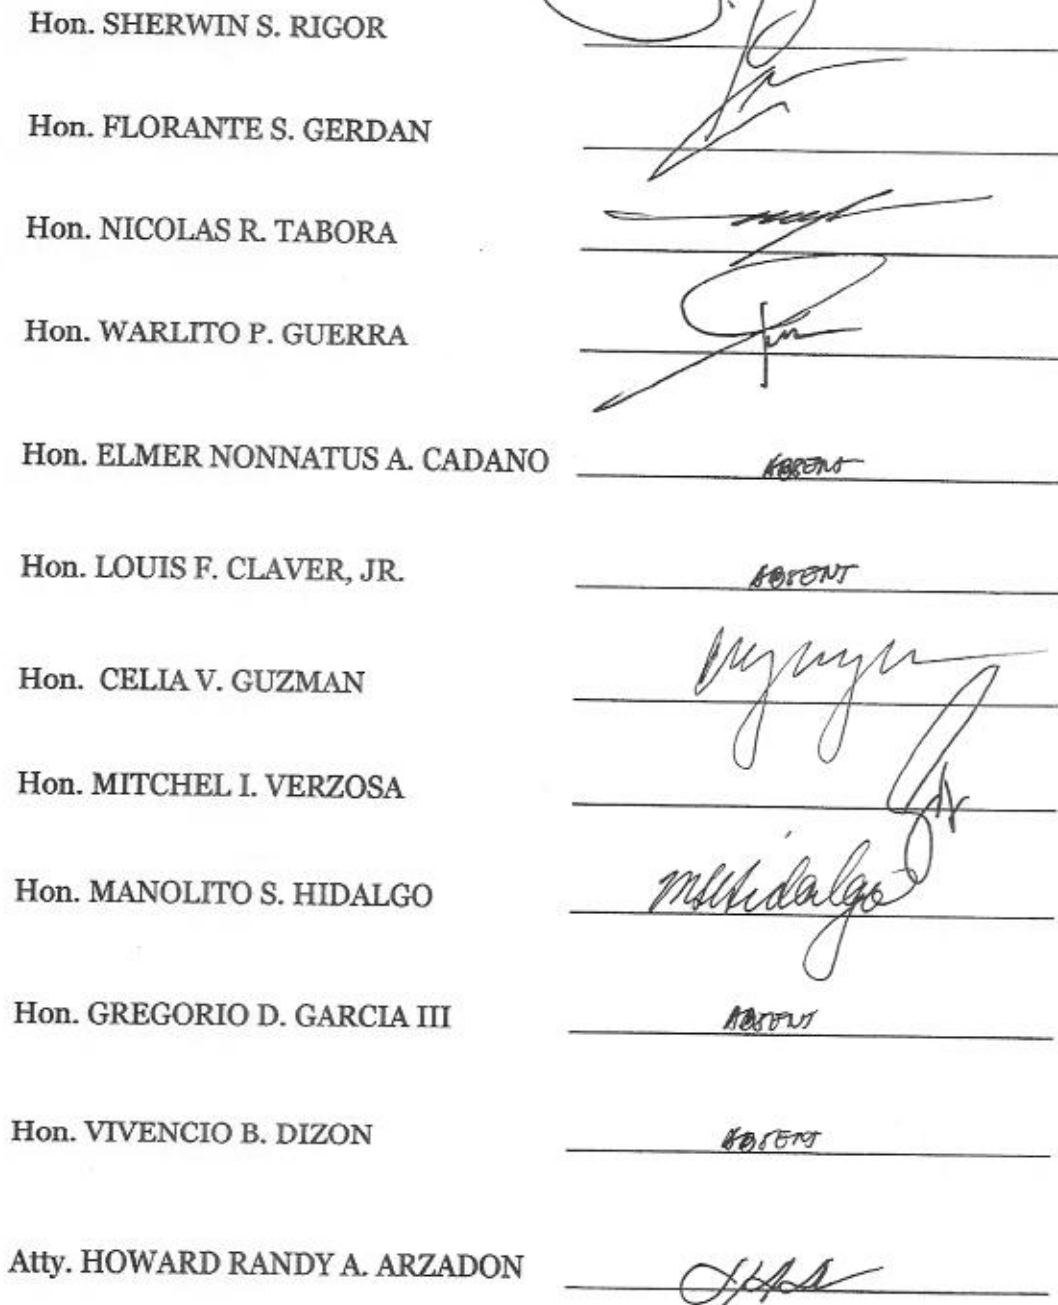 Hon. SHERWIN S. RIGOR
Hon. FLORANTE S. GERDAN
Hon. NICOLAS R. TABORA
Hon. WARLITO P. GUERRA
Hon. ELMER NONNATUS A. CADANO ABSENT
Hon. LOUIS F. CLAVER, JR. ABSENT
Hon. CELIA V. GUZMAN
Hon. MITCHEL I. VERZOSA
Hon. MANOLITO S. HIDALGO MSHidalgo
Hon. GREGORIO D. GARCIA III ABSENT
Hon. VIVENCIO B. DIZON ABSENT
Atty. HOWARD RANDY A. ARZADON